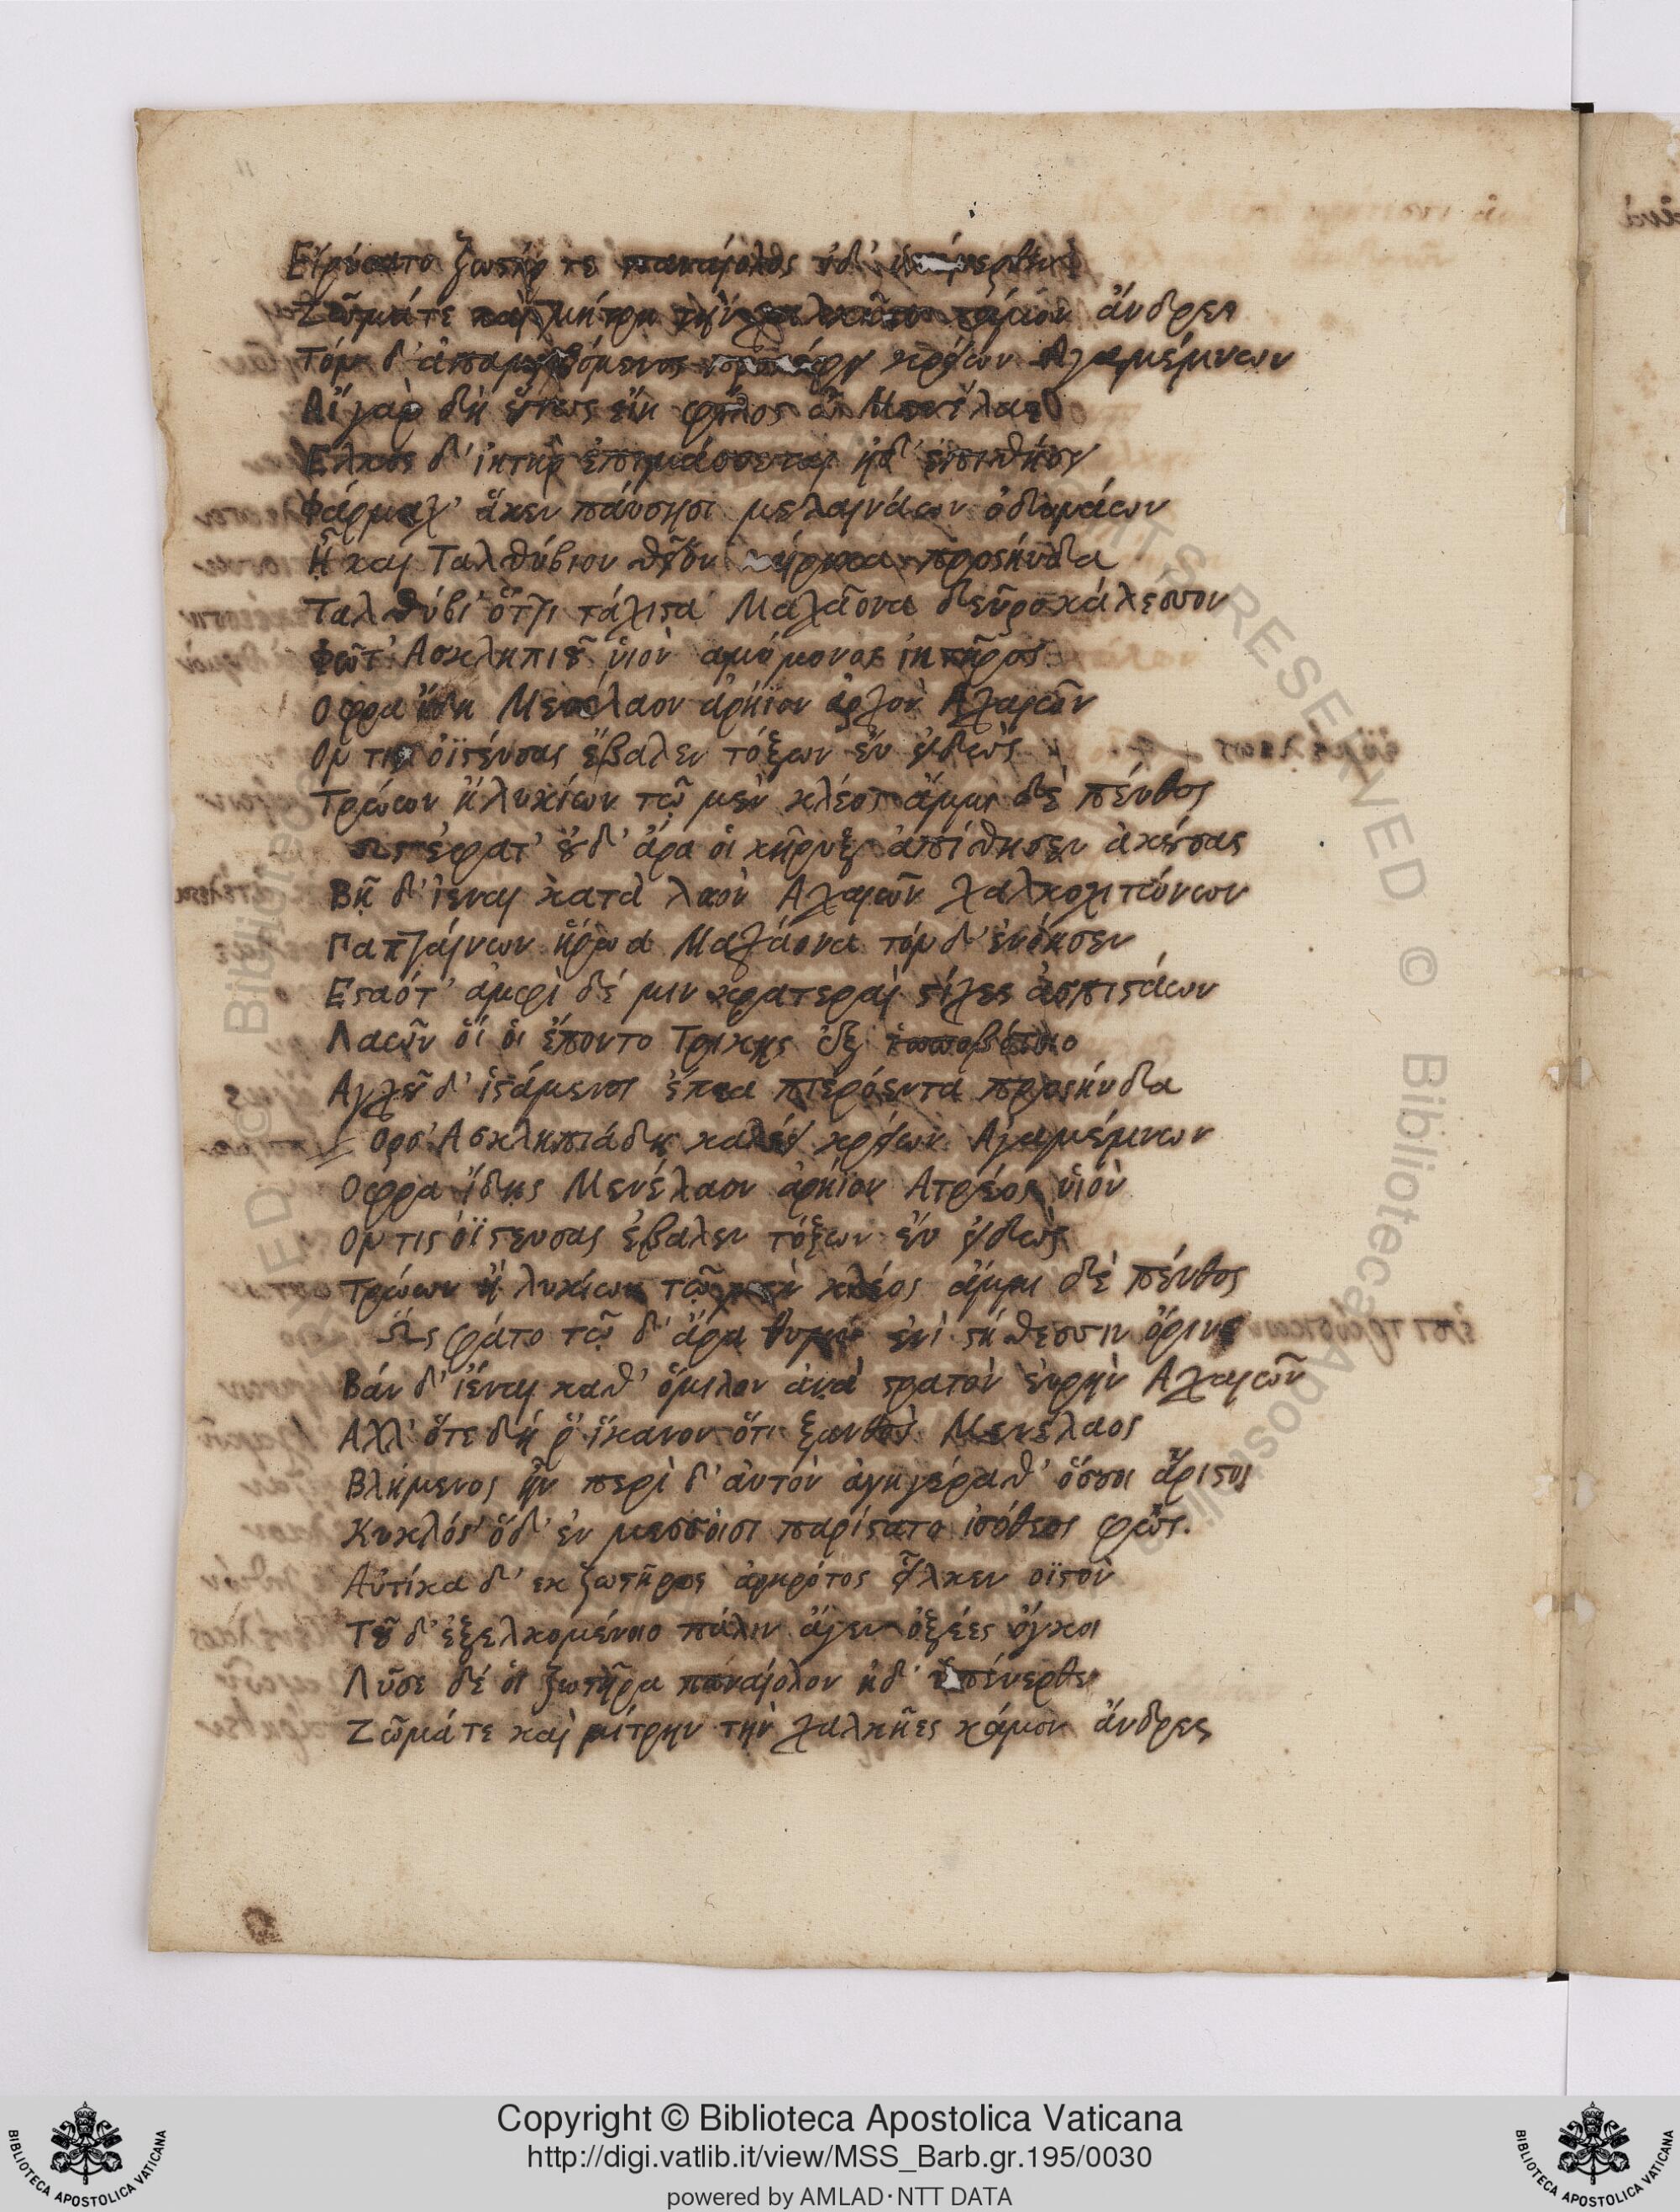 Εἰρύσατο ζωστήρ τε παναίολος ἠδ' ὑπένερθεν
Ζῶμάτε καὶ μήτρη τὴν χαλκῆες κάμον ἄνδρες
Τόν δ' ἀπαμειβόμενος προσέφη κρείων Αγαμέμνων
Αἴ γαρ δὴ ὅυτως εἴη φίλος ὦ Μενέλαε
Ελκος δ' ἰητὴρ ἐπιμάσσεται ἠδ' ἐπιθήσει
Φάρμαχ' ἅκεν πάυσησι μελαινάων ὀδυνάων
Ἦ και Ταλθύβιον θεῖον κήρυκα προσήυδα
Ταλθύβι' ὅττι τάχιστα Μαχᾶονα δεῦρο κάλεσσον
Φῶτ' Ασκληπιοῦ ὑιὸν αμύμονος ἰητῆρος
Οφρα ἴδη Μενέλαον ἀρήϊον ἀρχὸν Αχαιῶν
Ον τις ὀϊστέυσας ἔβαλεν τόξων ἐῢ ειδὼς
Τρώων ἢ λυκίων τῷ μὲν κλέος ἄμμι δὲ πένθος
Ως ἐφατ' οὐδ' ἄρα ὁι κῆρυξ ἀπίθησεν ἀκέσας
Βῆ δ' ἰεναι κατὰ λαὸν Αχαιῶν χαλκοχιτώνων
Παπταίνων ἥρωα Μαχάονα τόν δ' ἐνόησεν
Εσταότ' ἀμφὶ δέ μιν κρατεραὶ στίχες ἀσπιστάων
Λαῶν ὅι ὁι ἕποντο Τρικης ἐξ ἱπποβότοιο
Αγχοῦ δ' ἱστάμενος ἐπεα πτερόεντα προσήυδα
Ορσ' Ασκληπιάδη καλέει κρείων Αγαμέμνων
Οφρα ἴδης Μενέλαον ἀρήϊον Ατρέος ὑιὸν
Ον τις ὀϊστευσας ἐβαλεν τόξων ἐῢ ειδὼς
Τρώων ἢ λυκίων τῷ μὲν κλέος ἄμμι δὲ πένθος
Ὣς φάτο τῷ δ' ἄρα θυμὸν ἐνὶ στήθεσσιν ὄρινε
Βάν δ' ἰέναι καθ' ὅμιλον ἀνὰ στρατὸν ἐυρὴν Αχαιῶν
Αλλ' ὅτε δή ῥ' ἵκανον ὅτι ξανθὸς Μενέλαος
Βλήμενος ἦν περὶ δ' ἀυτὸν ἀγηγέραθ' ὅσσοι ἄριστοι
Κυκλόσ' ὅδ' ἐν μεσσοισι παρίστατο ἰσόθεος φὼς.
Αὐτίκα δ' εκ ζωστῆρος ἀρηρότος εἷλκεν οϊστὸν
Τοῦ δ' ἐξελκομένοιο πάλιν ἄγεν ὀξέες ὄγκοι
Λῦσε δέ ὁι ζωστῆρα παναίολον ἠδ' ὑπένερθεν
Ζῶμά τε καὶ μίτρην τὴν χαλκῆες κάμον ἄνδρες
Copyright © Biblioteca Apostolica Vaticana
http://digi.vatlib.it/view/MSS_Barb.gr.195/0030
powered by AMLAD·NTT DATA
BIBLIOTECA APOSTOLICA VATICANA
BIBLIOTECA APOSTOLICA VATICANA